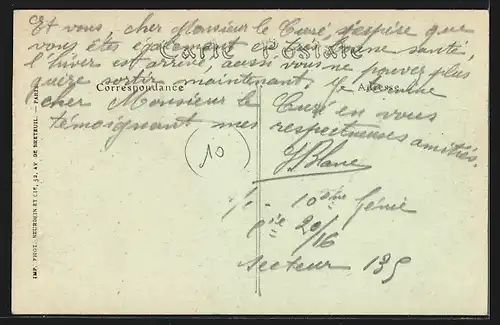 Et vous, cher Monsieur le Curé, j'espère que
vous êtes également en très bonne santé,
CARTE POSTALE
l'hiver est arrivé, aussi vous ne pouvez plus
guère sortir maintenant. Je termine
Correspondance
Adresse
cher Monsieur le Curé en vous
témoignant mes respectueuses amitiés.
10
Blanc
10ème Génie
Cie 20/16
Secteur 135
IMP. PHOT. NEURDEIN ET CIE, 52, AV. DE BRETEUIL. - PARIS